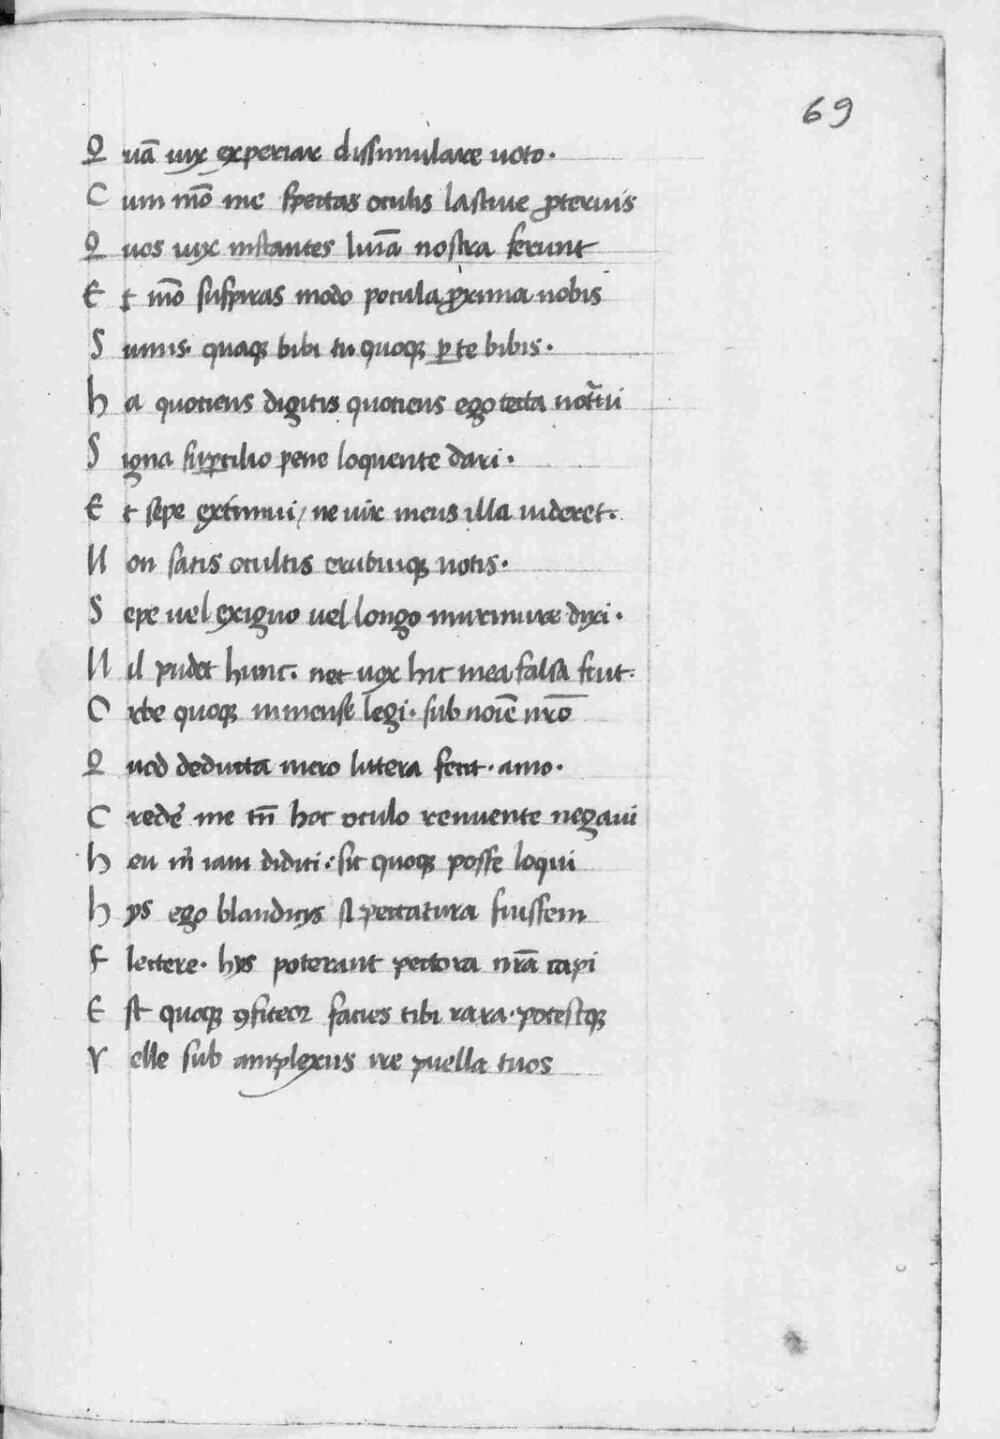 69
Quā uix experiar dissimulare noto.
Cum mō me spectas oculis lasciue proteruis
Quos uix instantes lumīa nostra ferunt
Et mō suspiras modo pocula proxima nobis
Sumis. quaque bibi tu quoque parte bibis.
ha quotiens digitis quotiens ego tecta notaui
Signa supercilio pene loquente dari.
Et sepe extimui / ne uir meus illa uideret.
Non satis ocultis erubuique notis.
Sepe uel exiguo uel longo murmure dixi.
Nil pudet hunc. nec uox hic mea falsa fuit.
Orbe quoque in mense legi. sub noīe nr̄o
Quod deducta mero littera fecit. amo.
Crede me tn̄ hoc oculo renuente negaui
heu m̄ iam didici. sic quoque posse loqui
hys ego blandicys si peccatura fuissem
flectere. hys poterant pectora nr̄a capi
Est quoque ꝯfiteor facies tibi rara. potestque
Velle sub amplexus ire puella tuos